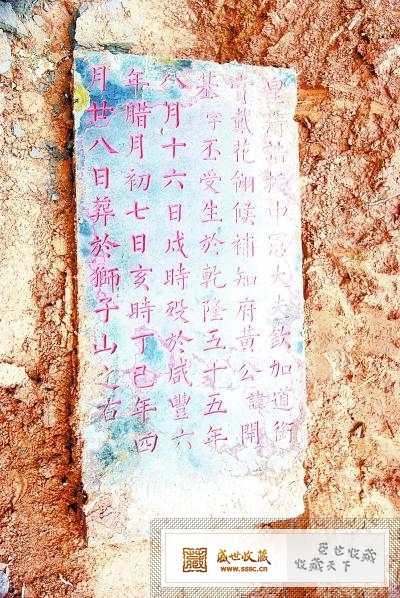 皇清誥授中憲大夫欽加道銜
賞戴花翎候補知府黃公諱開
基字丕受生於乾隆五十五年
八月十六日戌時歿於咸豐六
年臘月初七日亥時丁巳年四
月廿八日葬於獅子山之右
盛世收藏
www.sssc.cn
盛世收藏
收藏天下